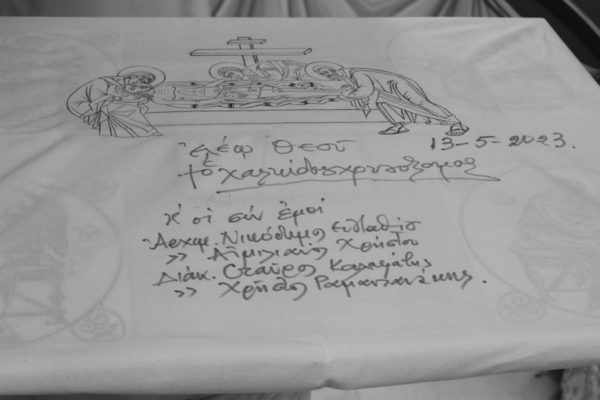 ἐλέῳ Θεοῦ 13-5-2023.
† ὁ Χαλκίδος Χρυσόστομος
κ' οἱ σύν ἐμοί
Ἀρχιμ. Νικόδημος Εὐσταθίου
» Αἰμιλιανός Χρήστου
Διάκ. Σταῦρος Καλαφάτης
» Χρῆστος Ραμαντανάκης.